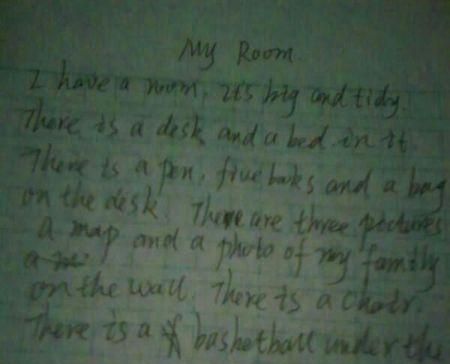 My Room.
I have a room, its big and tidy.
There is a desk and a bed in it.
There is a pen, five boks and a bag
on the desk. There are three pictures
a map and a photo of my family
on the wall. There is a chair.
There is a basketball under the